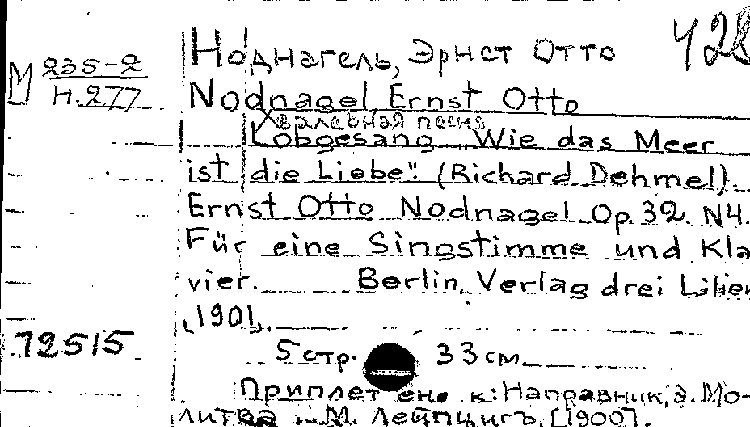 Ноднагель, Эрнст Отто 428
М 235-2
Н.277
Nodnagel Ernst Otto
Хвалебная песня
Lobgesang „Wie das Meer
ist die Liebe". (Richard Dehmel)
Ernst Otto Nodnagel Op. 32. N4.
Für eine Singstimme und Kla
vier. Berlin, Verlag drei Lilien
[190].
72515
5 стр. 33 см
Приплетено к: Направник, Э. Мо-
литва М. Лейпцигъ, [1900].